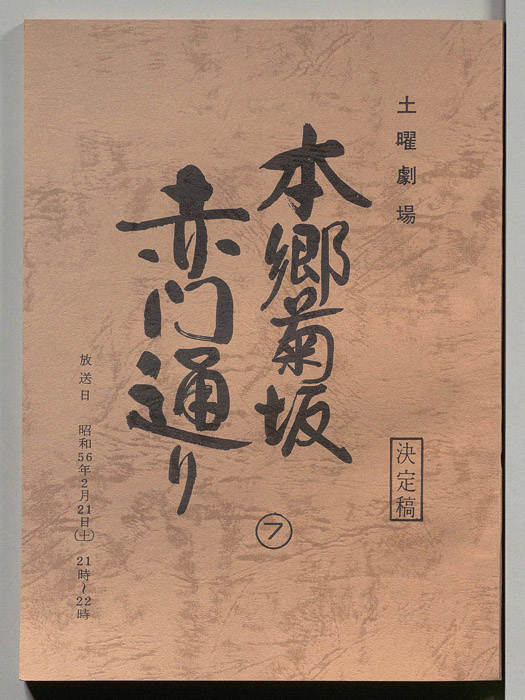 土曜劇場
本郷菊坂
赤门通り
⑦
決定稿
放送日 昭和56年2月21日(土) 21時~22時